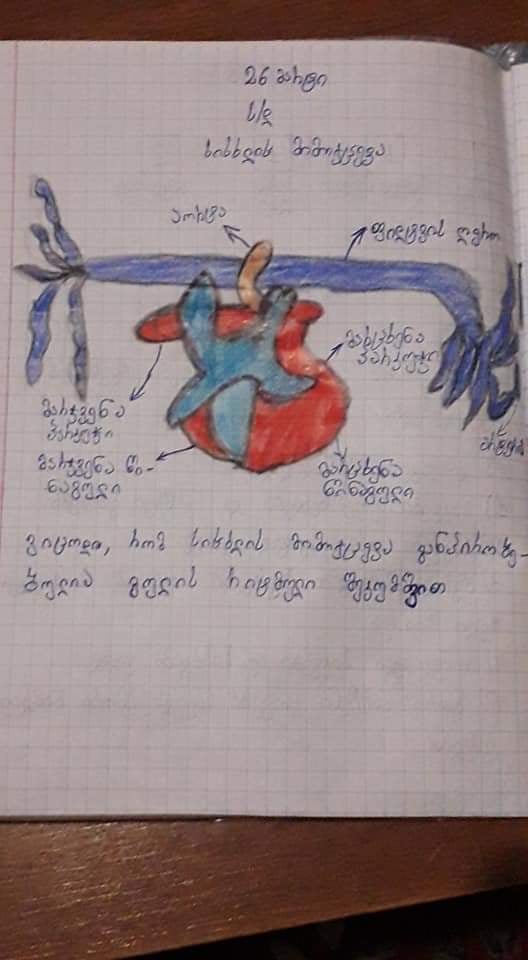 26 მარტი
ს/დ
სისხლის მიმოქცევა
აორტა
ფილტვის ღერო
მარცხენა
პარკუჭი
მარჯვენა
პარკუჭი
მარჯვენა წი-
ნაგული
მარცხენა
წინაგული
ვიცოდი, რომ სისხლის მიმოქცევა განპირობე-
ბულია გულის რიტმული შეკუმშვით